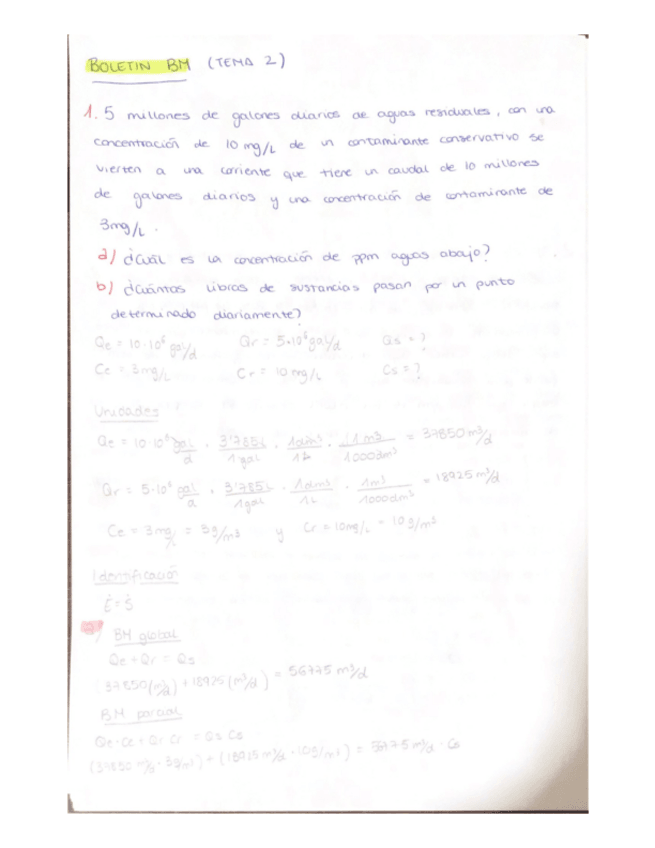 BOLETIN BM (TEMA 2)
1. 5 millones de galones diarios de aguas residuales, con una
concentración de 10 mg/L de un contaminante conservativo se
vierten a una corriente que tiene un caudal de 10 millones
de galones diarios y una concentración de contaminante de
3mg/L.
a) ¿Cuál es la concentración de ppm aguas abajo?
b) ¿Cuántas libras de sustancias pasan por un punto
determinado diariamente?
Qe = 10·10⁶ gal/d Qr = 5·10⁶ gal/d Qs = ?
Ce = 3mg/L Cr = 10 mg/L Cs = ?
Unidades
Qe = 10·10⁶ gal/d · 3'785L/1gal · 1dm³/1L · 1m³/1000dm³ = 37850 m³/d
Qr = 5·10⁶ gal/d · 3'785L/1gal · 1dm³/1L · 1m³/1000dm³ = 18925 m³/d
Ce = 3mg/L = 3g/m³ y Cr = 10mg/L = 10 g/m³
Identificación
Ė = Ṡ
BM global
Qe + Qr = Qs
37850 (m³/d) + 18925 (m³/d) = 56775 m³/d
BM parcial
Qe·Ce + Qr Cr = Qs Cs
(37850 m³/d · 3g/m³) + (18925 m³/d · 10g/m³) = 56775 m³/d · Cs